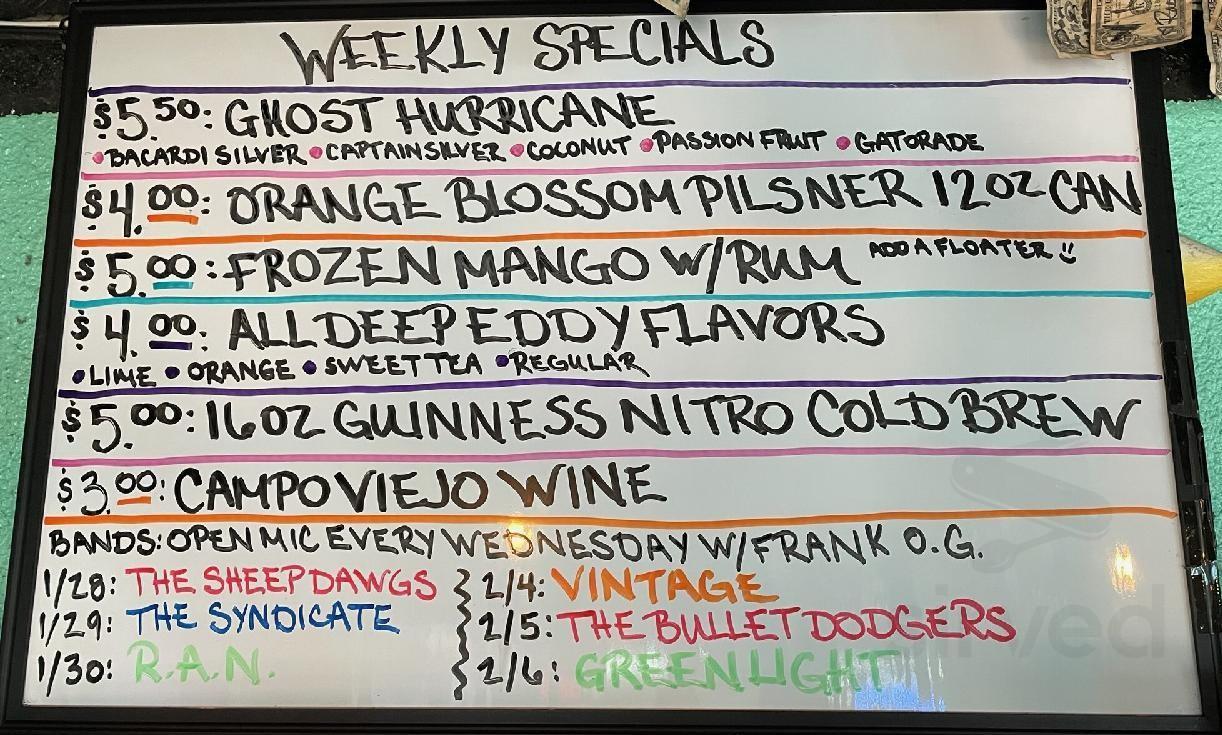 WEEKLY SPECIALS
$5.50: GHOST HURRICANE
•BACARDI SILVER •CAPTAIN SILVER •COCONUT •PASSION FRUIT •GATORADE
$4.00: ORANGE BLOSSOM PILSNER 12OZ CAN
$5.00: FROZEN MANGO W/RUM ADD A FLOATER :)
$4.00: ALL DEEP EDDY FLAVORS
•LIME •ORANGE •SWEET TEA •REGULAR
$5.00: 16OZ GUINNESS NITRO COLD BREW
$3.00: CAMPO VIEJO WINE
BANDS: OPEN MIC EVERY WEDNESDAY W/FRANK O.G.
1/28: THE SHEEPDAWGS 2/4: VINTAGE
1/29: THE SYNDICATE 2/5: THE BULLET DODGERS
1/30: R.A.N. 2/6: GREENLIGHT